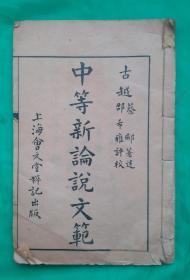 古越
蔡郕著述
邵希雍評校
中等新論說文範
上海會文堂粹記出版